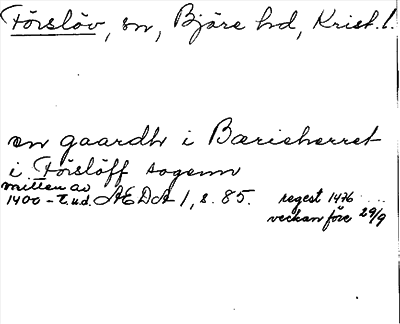 Förslöv, sn, Bjäre hd, Krist. l.
en gaardh i Bærisherret
i Förslöff sogenn
mitten av
1400-t. u.d. AEDA 1, s. 85. regest 1476 ....
veckan före 29/9